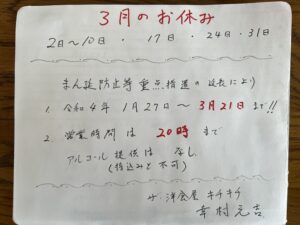 3月のお休み
2日〜10日 ・ 17日 ・ 24日・31日
まん延防止等重点措置の延長により
1. 令和4年1月27日〜3月21日まで!!
2. 営業時間は 20時まで
アルコール提供は なし
(持込みも不可)
ザ・洋食屋 キチキチ
幸村元吉